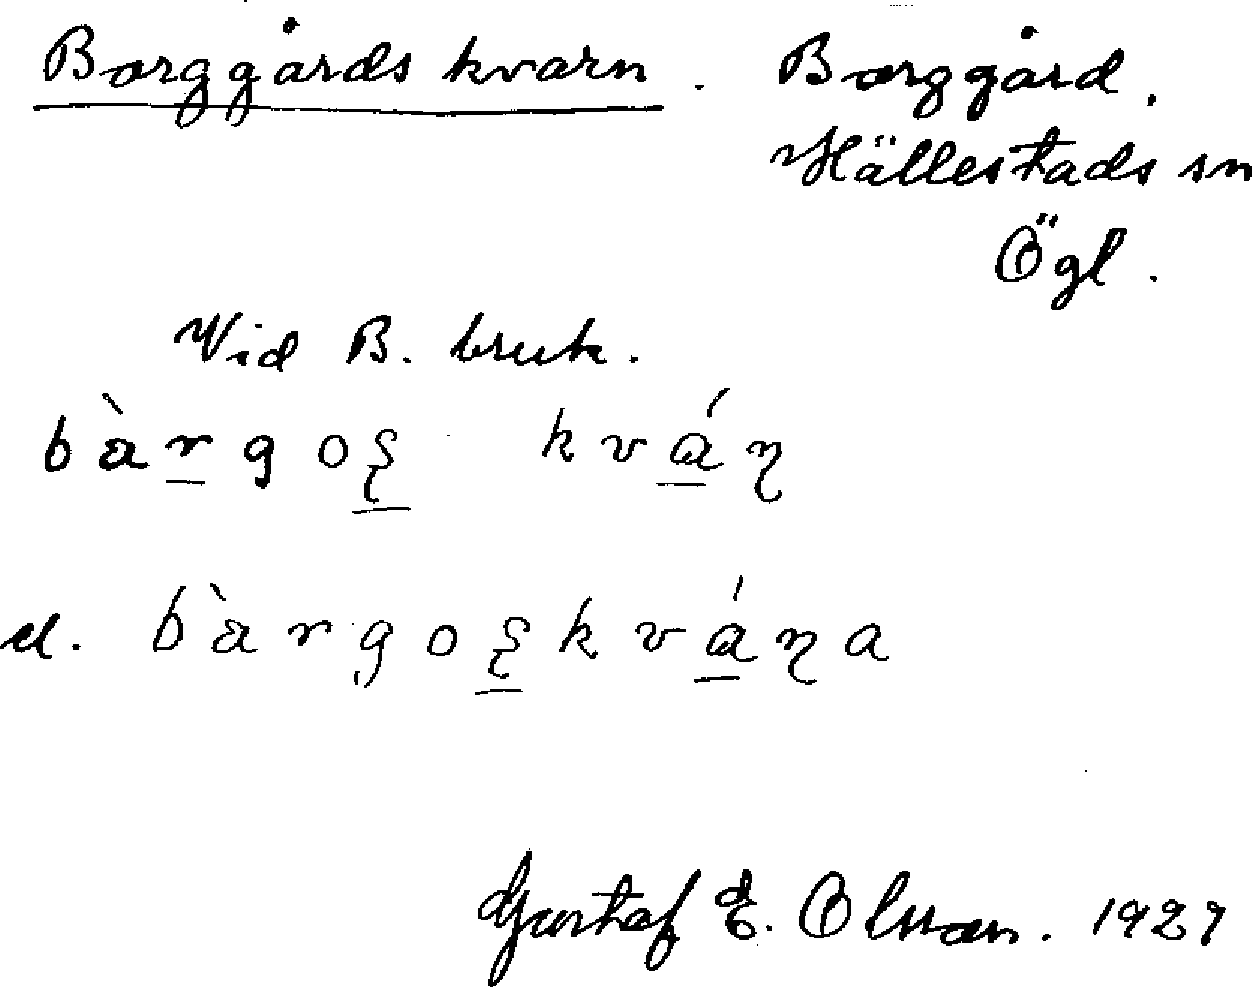 Borggårds kvarn. Borggård.
Hällestads sn
Ögl.
Vid B. bruk.
bàrgoʂ kváɳ
el. bàrgoʂkváɳa
Gustaf E. Olsson. 1927